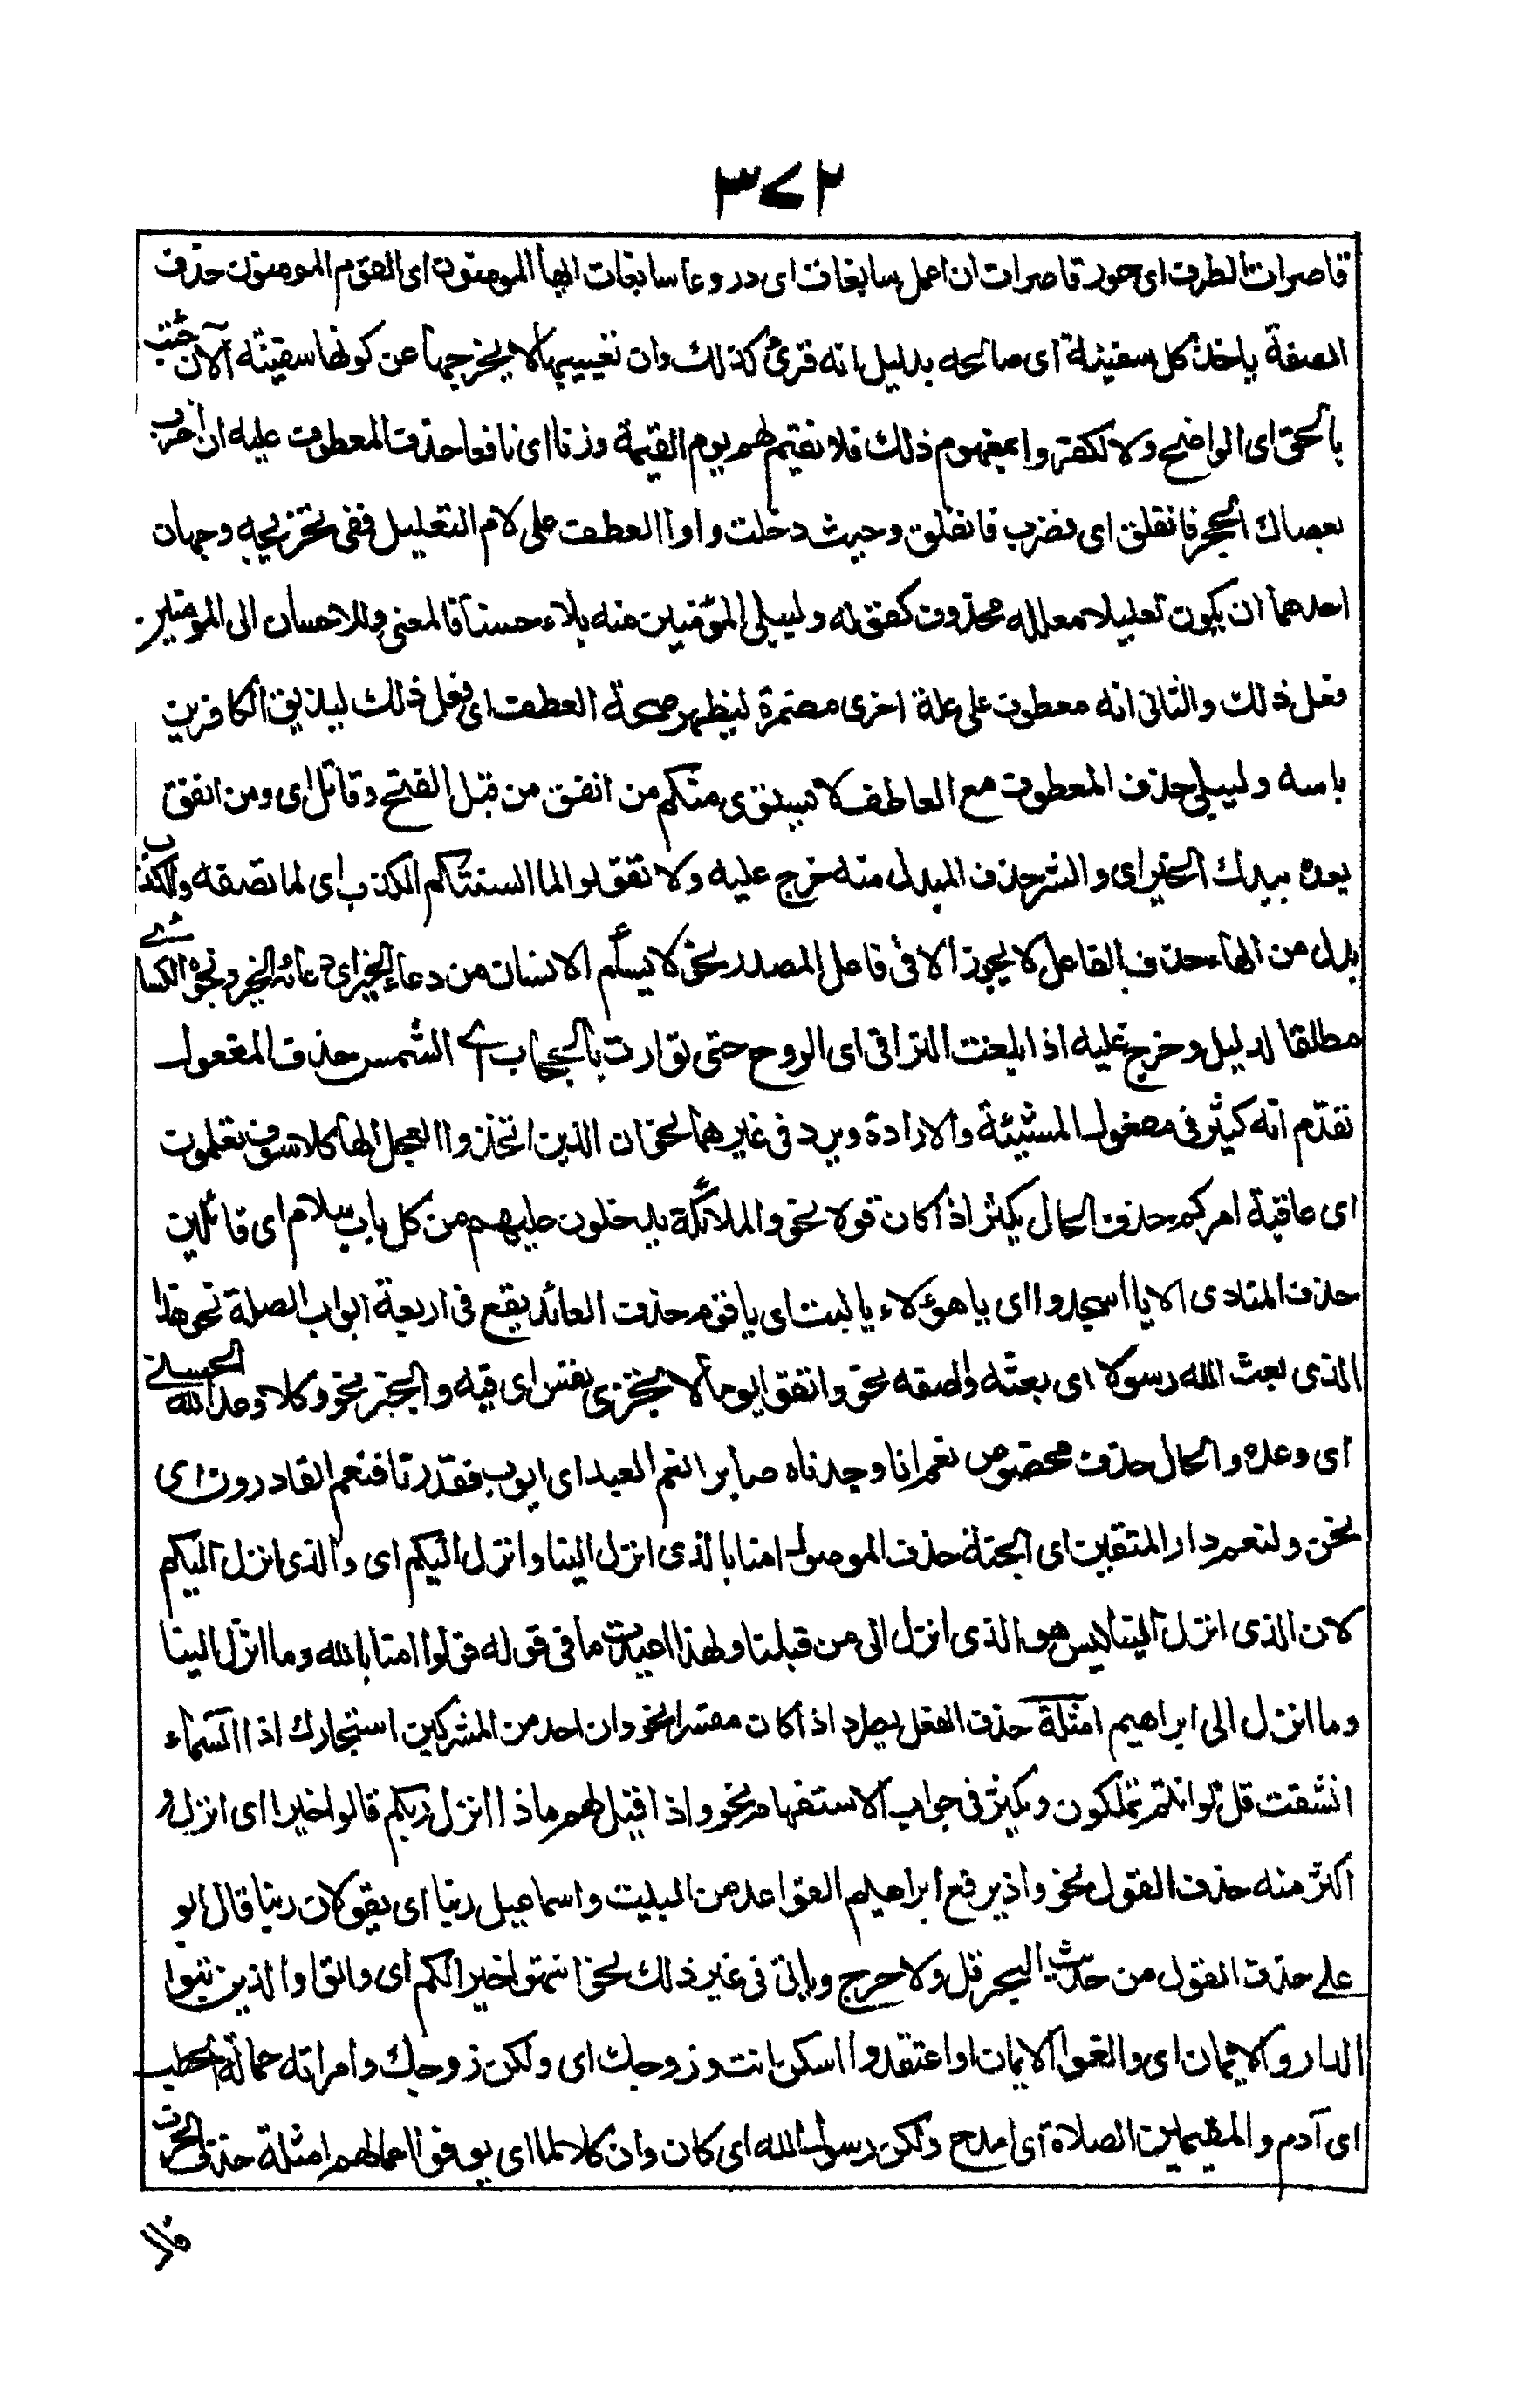 ٣٧٢
قاصرات الطرف اى حور قاصرات ان اعمل سابغات اى دروعا سابغات ايها المومنون اى القوم المومنون حذف
الصفة ياخذ كل سفينة اى صالحه بدليل انه قرئ كذلك وان تعييبها لا يخرجها عن كونها سفينة الآن جئت
بالحق اى الواضح والا لكفروا بمفهوم ذلك فلا نقيم لهم يوم القيمة وزنا اى نافعا حذف المعطوف عليه ان اضرب
بعصاك الحجر فانفلق اى فضرب فانفلق وحيث دخلت واو العطف على لام التعليل ففى تخريجه وجهان
احدهما ان يكون تعليلا معلله محذوف كقوله وليبلى المؤمنين منه بلاء حسنا فالمعنى وللاحسان الى المومنين
فعل ذلك والثانى انه معطوف على علة اخرى مضمرة ليظهر صحة العطف اى فعل ذلك ليذيق الكافرين
باسه وليبلى حذف المعطوف مع العاطف لا يستوى منكم من انفق من قبل الفتح وقاتل اى ومن انفق
بعده بيدك الخير اى والشر حذف المبدل منه خرج عليه ولا تقولوا لما السنتكم الكذب اى لما تصفه والكذب
بدل من الهاء حذف الفاعل لا يجوز الا فى فاعل المصدر نحو لا يسأم الانسان من دعاء الخير اى دعائه الخير وجوزه الكسائى
مطلقا لدليل وخرج عليه اذا بلغت التراقى اى الروح حتى توارت بالحجاب اى الشمس حذف المفعول
تقدّم انه كثير فى مفعول المشيئة والارادة ويرد فى غيرهما نحو ان الذين اتخذوا العجل الها كلا سوف تعلمون
اى عاقبة امركم حذف الحال يكثر اذا كان قولا نحو والملائكة يدخلون عليهم من كل باب سلام اى قائلين
حذف المنادى الا يا اسجدوا اى يا هؤلاء يا ليت اى يا قوم حذف العائد يقع فى اربعة ابواب الصلة نحو هذا
الذى بعث الله رسولا اى بعثه والصفه نحو واتقوا يوما لا تجزى نفس اى فيه والخبر نحو وكلا وعد الله الحسنى
اى وعده والحال حذف مخصوص نعم انا وجدناه صابرا نعم العبد اى ايوب فقدّرنا فنعم القادرون اى
نحن ولنعم دار المتقين اى الجنة حذف الموصول امنا بالذى انزل الينا وانزل اليكم اى والذى انزل اليكم
لان الذى انزل الينا ليس هو الذى انزل الى من قبلنا ولهذا اعيدت ما فى قوله قولوا امنا بالله وما انزل الينا
وما انزل الى ابراهيم امثلة حذف الفعل يطرد اذا كان مفسرا نحو وان احد من المشركين استجارك اذا السماء
انشقت قل لو انتم تملكون ويكثر فى جواب الاستفهام نحو واذا قيل لهم ماذا انزل ربكم قالوا خيرا اى انزل و
اكثر منه حذف القول نحو واذ يرفع ابراهيم القواعد من البيت واسماعيل ربنا اى يقولان ربنا قال ابو
على حذف القول من حديث البحر قل ولا حرج وياتى فى غير ذلك نحو انتهوا خيرا لكم اى واتوا والذين تبوؤا
الدار والايمان اى والفوا الايمان او اعتقدوا اسكن انت وزوجك اى وليسكن زوجك وامراته حمالة الحطب
اى آدم والمقيمين الصلاة اى امدح ولكن رسول الله اى كان وان كلا لما اى يوفوا اعمالهم امثلة حذف الحرف